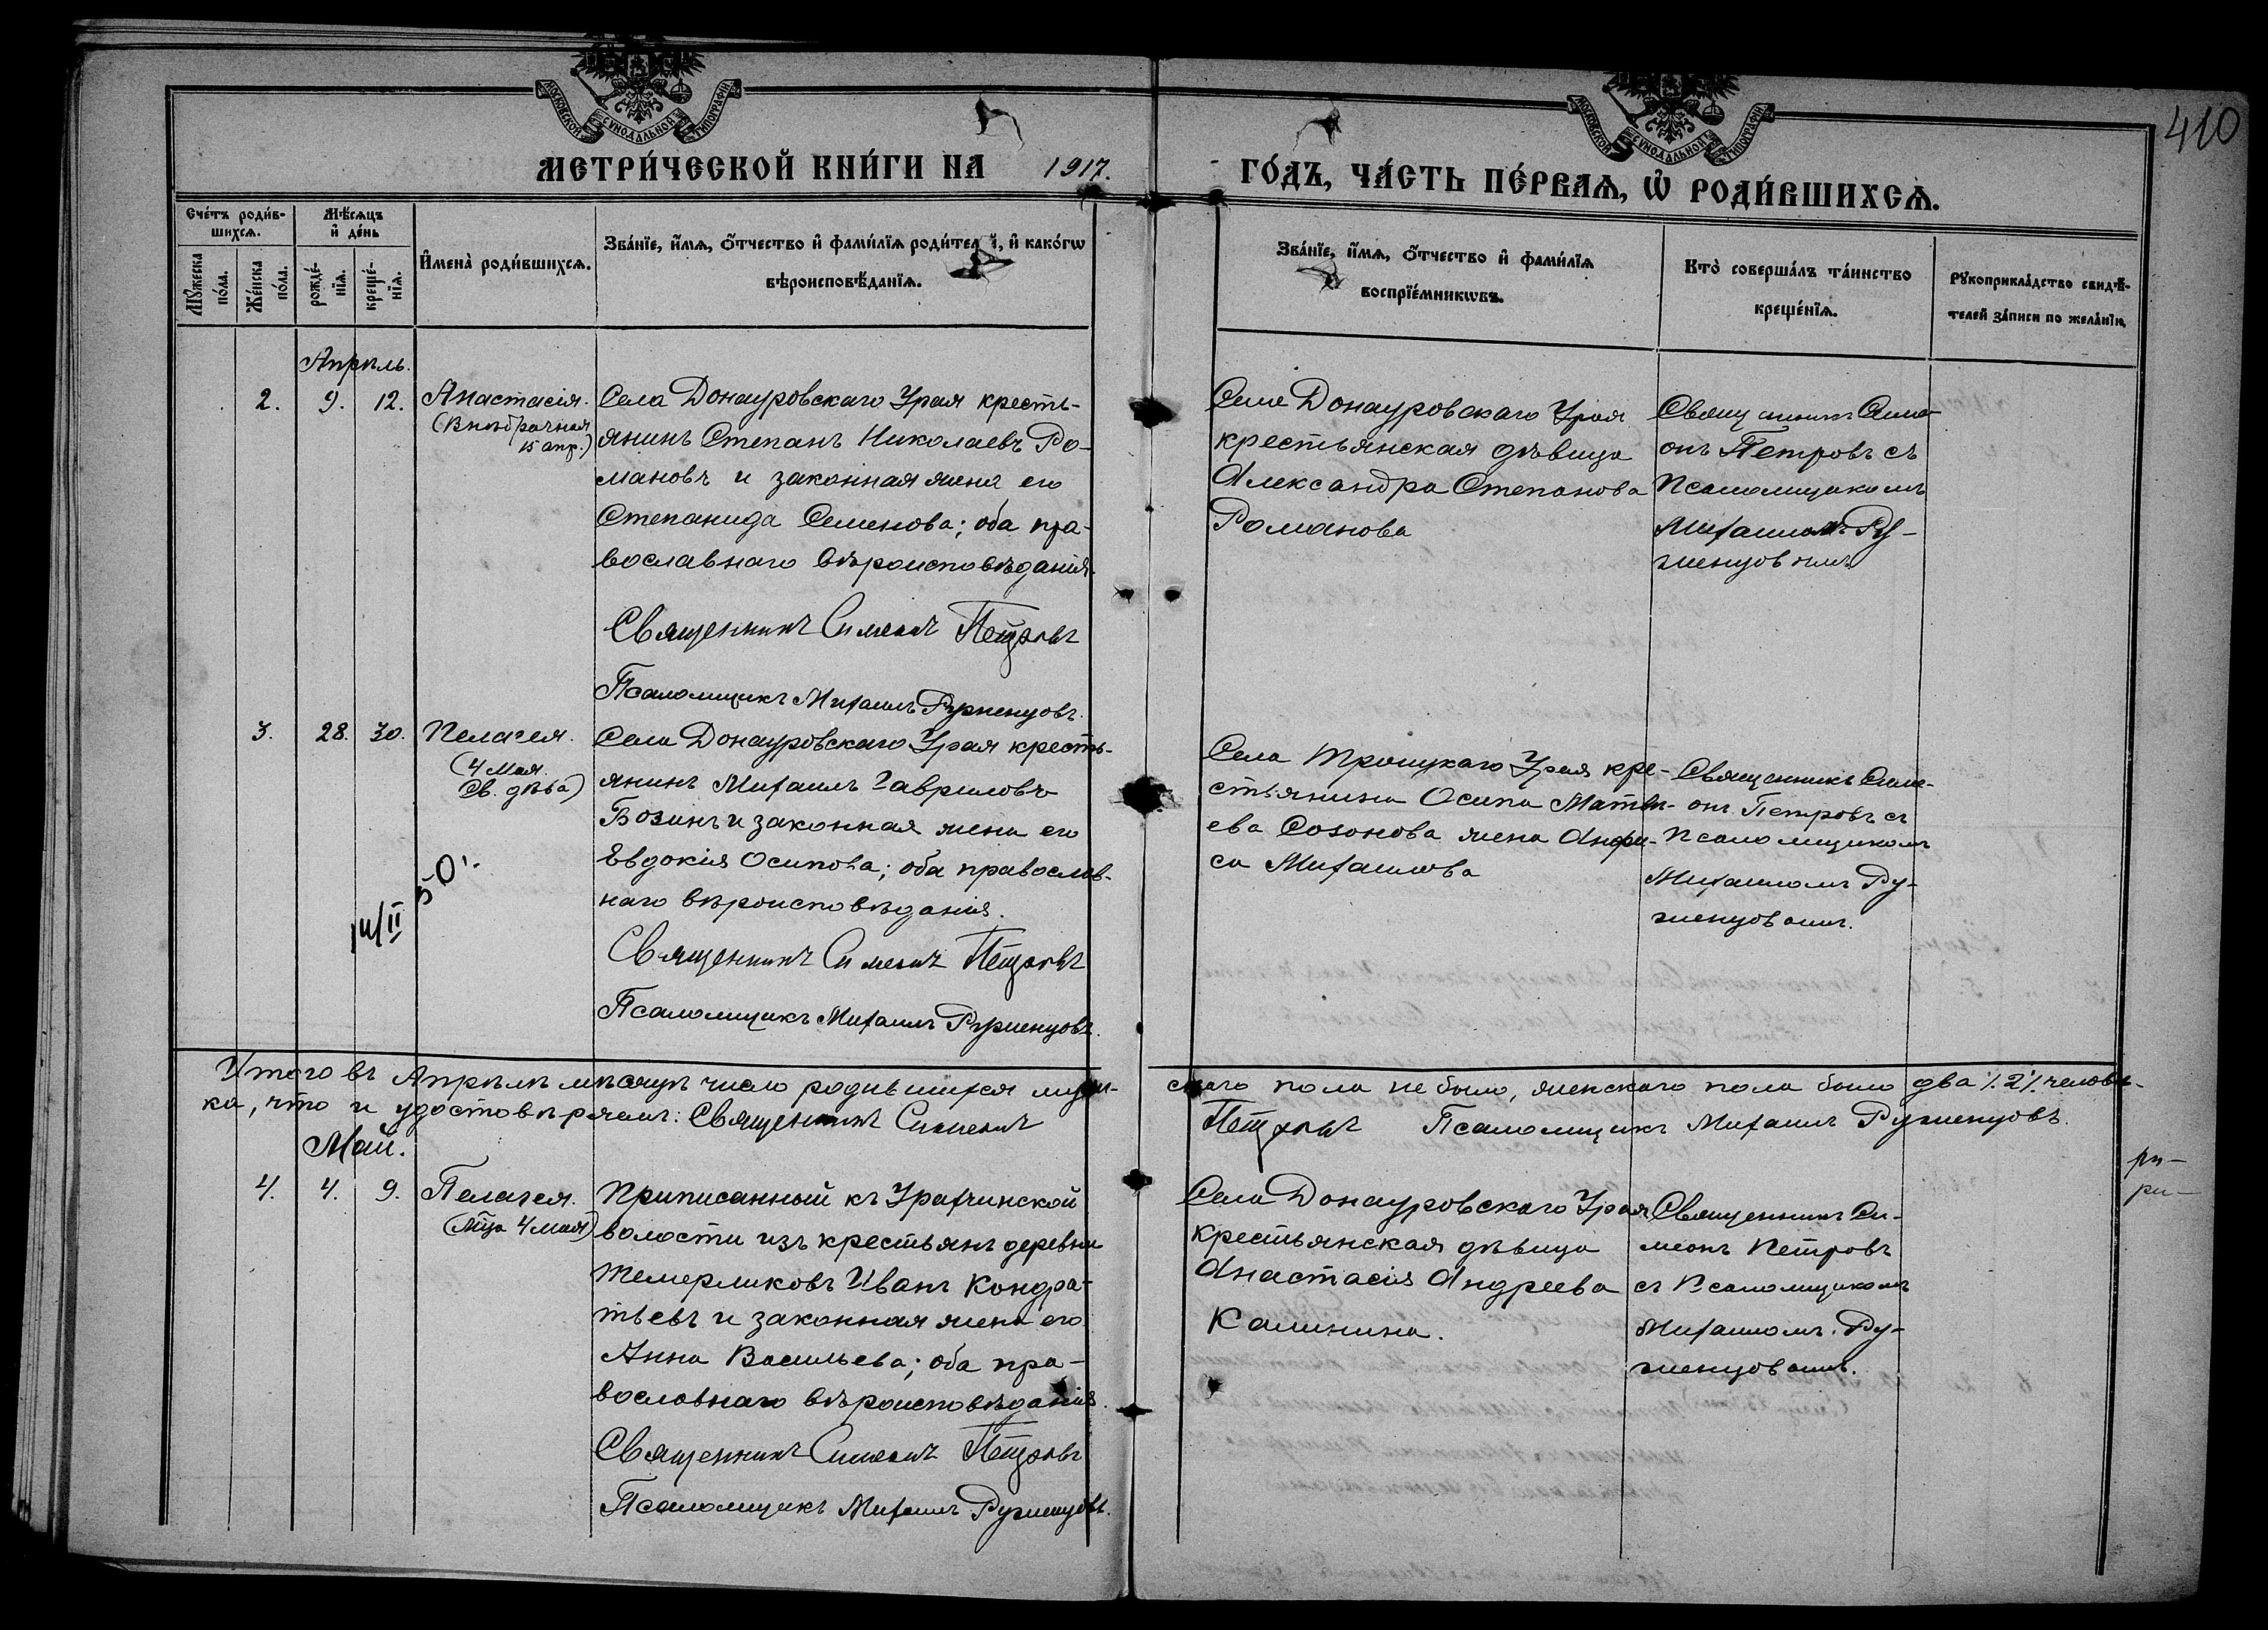 410
МОСКОВСКОЙ СѴНОДАЛЬНОЙ ТИПОГРАФІИ
МОСКОВСКОЙ СѴНОДАЛЬНОЙ ТИПОГРАФІИ
МЕТРИ́ЧЕСКОЙ КНИ́ГИ НА 1917.
ГО́ДЪ, ЧА́СТЬ ПЕ́РВАѦ, Ѡ҆ РОДИ́ВШИХСѦ.
Сче́тъ роди́в-
шихсѧ.
Мѣ́сѧцъ
и҆ де́нь
Мꙋ́жеска
по́ла.
Же́нска
по́ла.
рожде́-
нїѧ.
креще́-
нїѧ.
И҆мена̀ роди́вшихсѧ.
Зва́нїе, и҆́мѧ, ѻ҆́тчество и҆ фами́лїѧ роди́тел й, и҆ како́гѡ
вѣроисповѣ́данїѧ.
Зва́нїе, и҆́мѧ, ѻ҆́тчество и҆ фами́лїѧ
воспрїе́мникѡвъ.
Кто̀ соверша́лъ та́инство
креще́нїѧ.
Рꙋкоприкла́дство свидѣ́-
телей за́писи по жела́нїю
Апрѣль.
2. 9. 12. Анастасія.
(Внѣбрачная
15 апр.)
Села Донауровскаго Урая кресть-
янинъ Степанъ Николаевъ Ро-
мановъ и законная жена его
Степанида Семенова; оба пра-
вославнаго вѣроисповѣданія.
Священникъ Симеонъ Петровъ
Псаломщикъ Михаилъ Руженцовъ.
Села Донауровскаго Урая
крестьянская дѣвица
Александра Степанова
Романова
Священникъ Симе-
онъ Петровъ съ
Псаломщикомъ
Михаиломъ Ру-
женцовымъ
3. 28. 30. Пелагея.
(4 Мая.
Св. дѣва)
50
14/II
Села Донауровскаго Урая кресть-
янинъ Михаилъ Гавриловъ
Бозинъ и законная жена его
Евдокія Осипова; оба православ-
наго вѣроисповѣданія.
Священникъ Симеонъ Петровъ
Псаломщикъ Михаилъ Руженцовъ.
Села Троицкаго Урая кре-
стьянина Осипа Матвѣ-
ева Созонова жена Анфи-
са Михаилова
Священникъ Симе-
онъ Петровъ съ
Псаломщикомъ
Михаиломъ Ру-
женцовымъ.
Итого въ Апрѣлѣ мѣсяцѣ число родившихся муж-
скаго пола не было, женскаго пола было два %2% человѣ-
ка, что и удостовѣряемъ: Священникъ Симеонъ
Петровъ Псаломщикъ Михаилъ Руженцовъ.
Май.
4. 4. 9. Пелагея.
(Мца 4 мая)
Приписанный къ Урахчинской
волости изъ крестьянъ деревни
Темерликовъ Иванъ Кондра-
тьевъ и законная жена его
Анна Васильева; оба пра-
вославнаго вѣроисповѣданія.
Священникъ Симеонъ Петровъ
Псаломщикъ Михаилъ Руженцовъ.
Села Донауровскаго Урая
крестьянская дѣвица
Анастасія Андреева
Калинина.
Священникъ Си-
меонъ Петровъ
съ Псаломщикомъ
Михаиломъ Ру-
женцовымъ.